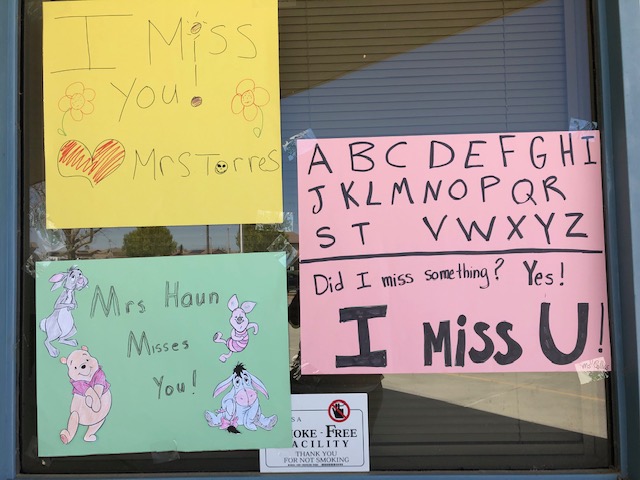 I Miss
You!
Mrs Torres
A B C D E F G H I
J K L M N O P Q R
S T V W X Y Z
Did I miss something? Yes!
I Miss U!
Mrs Haun
Misses
You!
OKE - FREE
ACILITY
THANK YOU
FOR NOT SMOKING